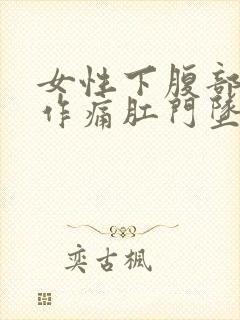 女性下腹部
作痛肛門墜
奕古楓